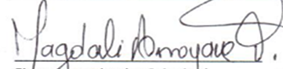 Magdali Arroyave O.